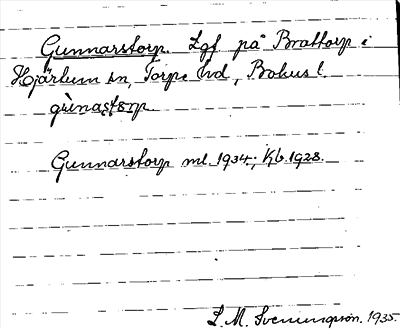 Gunnarstorp. Lgf på Brattorp i
Hjärtum sn, Torpe hd, Bohus l.
gùnastårp
Gunnarstorp ml. 1934; Kb. 1928.
L. M. Svenungsson. 1935.